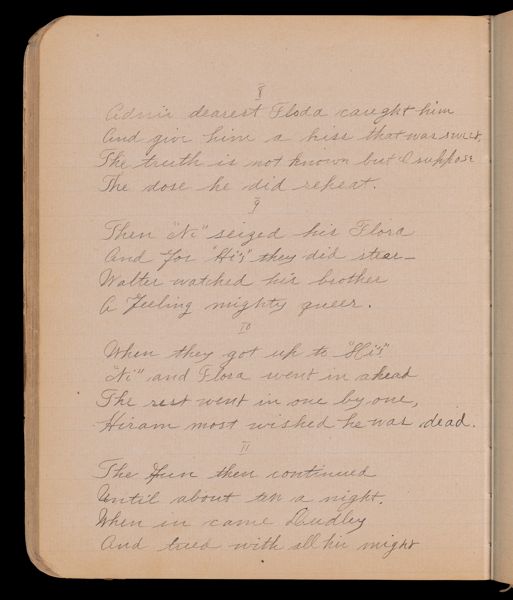 8
dearest Floda caught him
And give him a kiss that was sweet,
The truth is not known but I suppose
The dose he did repeat.
9
Then "Ni" seized his Flora
And for "Hi's" they did steer—
Walter watched his brother
A feeling mighty queer.
10
When they got up to "Hi's"
"Ni" and Flora went in ahead
The rest went in one by one,
Hiram most wished he was dead.
11
The fun then continued
Until about ten a night.
When in came Dudley
And tried with all his might